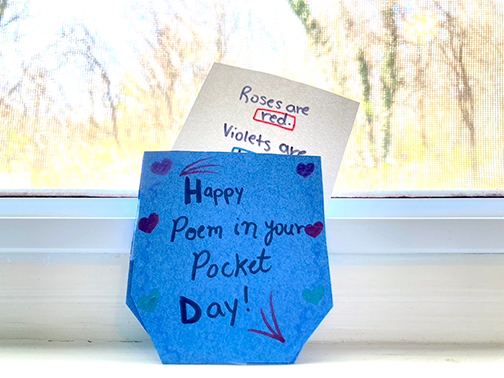 Roses are
red.
Violets are
Happy
Poem in your
Pocket
Day!